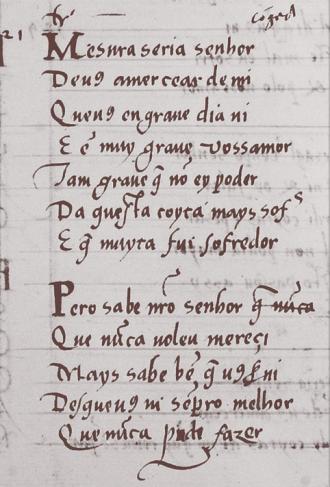 Mesura seria senhor
Deu9 amercear de mi
Queu9 en graue dia ui
E é muy graue vossamor
Tam graue q̃ nõ ey poder
Da questa coyta mays sofs
E q̃ muyta fui sofredor
Pero sabe nr̃o senhor q̃ nũca
Que nũca uoleu mereçi
Mays sabe bẽ q̃ u9
Desqueu9 ui sẽpro melhor
Que nũca pude fazer